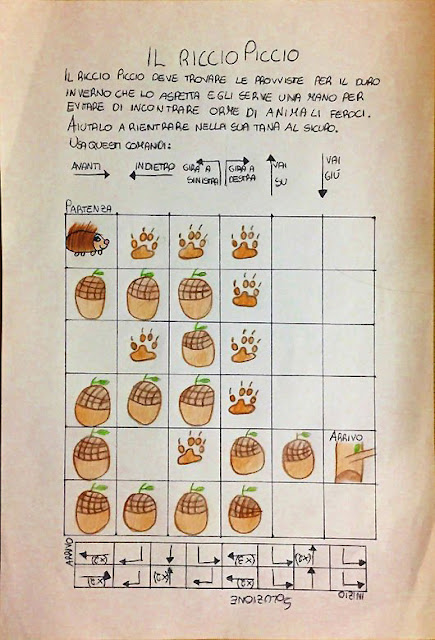 IL RICCIO PICCIO
IL RICCIO PICCIO DEVE TROVARE LE PROVVISTE PER IL DURO
INVERNO CHE LO ASPETTA E GLI SERVE UNA MANO PER
EVITARE DI INCONTRARE ORME DI ANIMALI FEROCI.
AIUTALO A RIENTRARE NELLA SUA TANA AL SICURO.
USA QUESTI COMANDI:
AVANTI INDIETRO GIRA A SINISTRA GIRA A DESTRA VAI SU VAI GIÚ
PARTENZA
ARRIVO
ARRIVO
(x2) (x2) (x2)
(x2) (x2) (x2)
INIZIO
SOLUZIONE